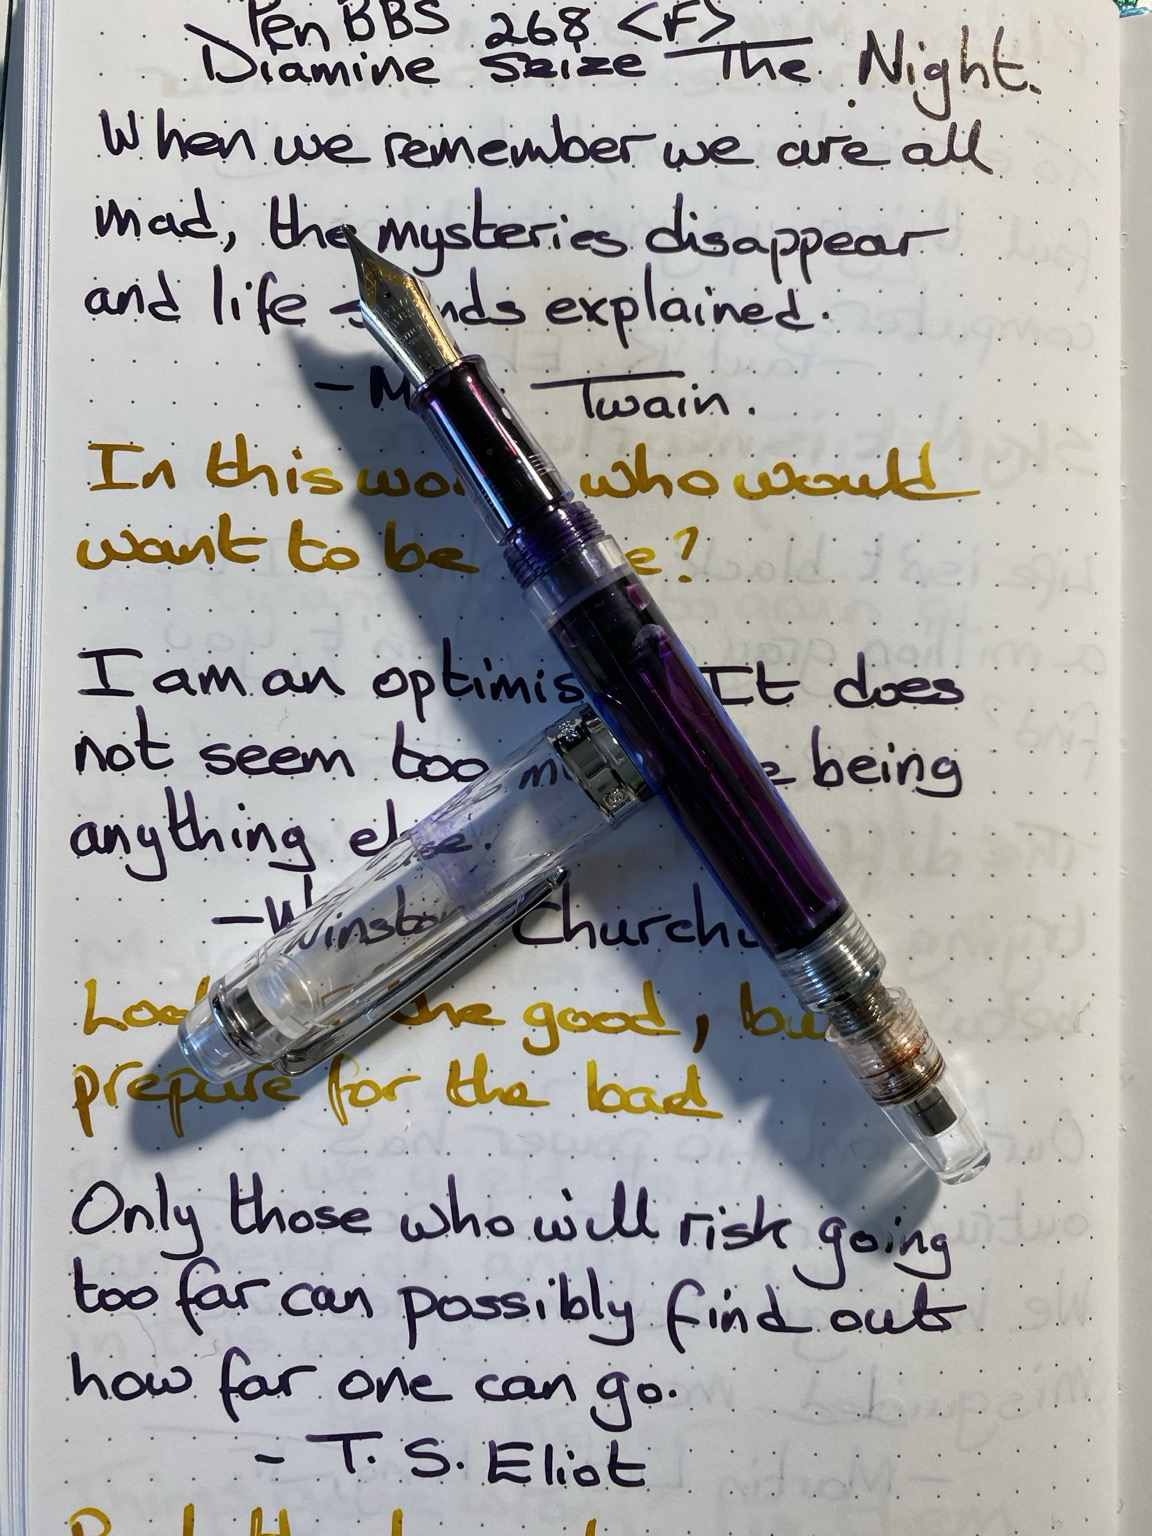 Pen BBS 268 <F>
Diamine Seize The Night.
When we remember we are all
mad, the mysteries disappear
and life explained.
- Twain.
In this who would
want to be ?
I am an It does
not seem too being
anything else.
- Winston
the good, but
prepare for the bad
Only those who will risk going
too far can possibly find out
how far one can go.
- T. S. Eliot